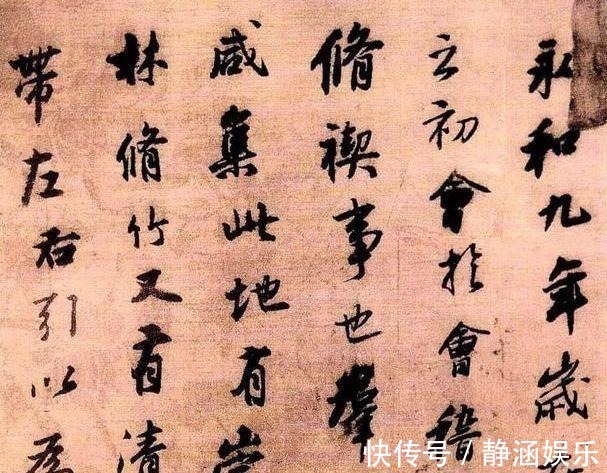 永和九年歲
之初會於會稽
脩禊事也羣
咸集此地有崇
林脩竹又有清
帶左右引以為
快传号 / 静涵娱乐